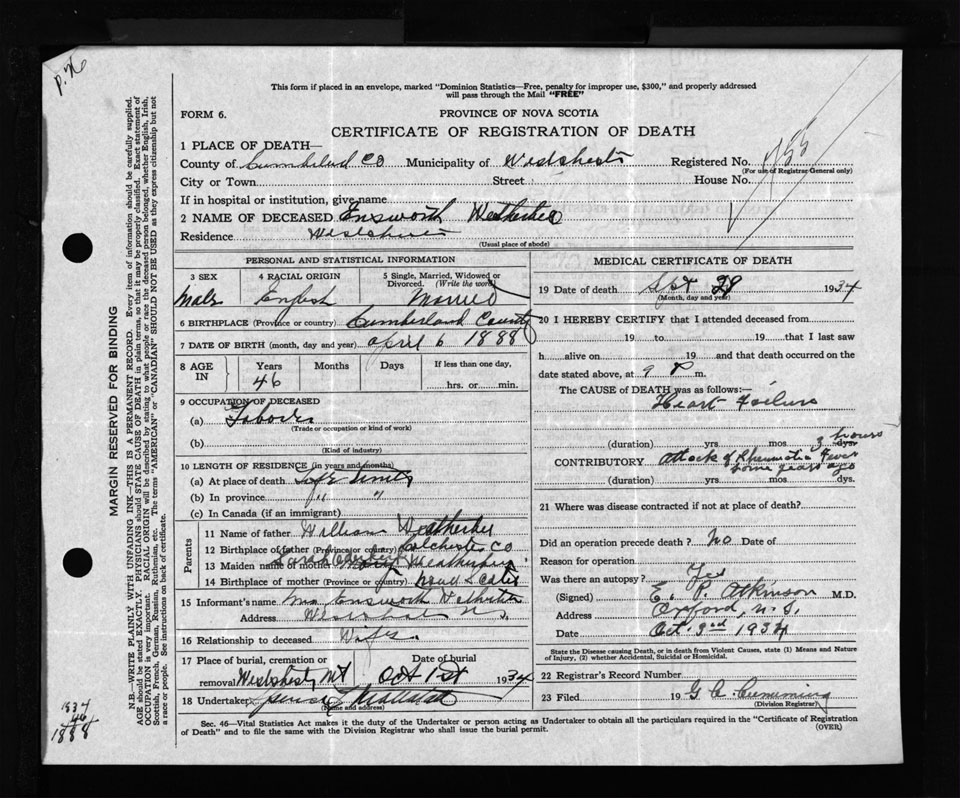 p. 76
This form if placed in an envelope, marked "Dominion Statistics—Free, penalty for improper use, $300," and properly addressed
will pass through the Mail "FREE"
FORM 6.
PROVINCE OF NOVA SCOTIA
CERTIFICATE OF REGISTRATION OF DEATH
1 PLACE OF DEATH—
County of Cumberland Co Municipality of Registered No.
(For use of Registrar General only)
City or Town Street House No.
If in hospital or institution, give name
2 NAME OF DECEASED Ensworth
Residence
(Usual place of abode)
PERSONAL AND STATISTICAL INFORMATION
3 SEX 4 RACIAL ORIGIN 5 Single, Married, Widowed or Divorced. (Write the word)
Male English Married
6 BIRTHPLACE (Province or country) Cumberland County
7 DATE OF BIRTH (month, day and year) April 6 1888
8 AGE IN Years Months Days If less than one day,
46 hrs. or min.
9 OCCUPATION OF DECEASED
(a)
(Trade or occupation or kind of work)
(b)
(Kind of industry)
10 LENGTH OF RESIDENCE (in years and months)
(a) At place of death Life time
(b) In province " "
(c) In Canada (if an immigrant)
Parents
11 Name of father William
12 Birthplace of father (Province or country) Colchester Co
13 Maiden name of mother
14 Birthplace of mother (Province or country) Nova Scotia
15 Informant's name Mrs Ensworth
Address
16 Relationship to deceased Wife
17 Place of burial, cremation or removal Date of burial Oct 1st 1934
18 Undertaker
(Name and address)
MEDICAL CERTIFICATE OF DEATH
19 Date of Death Sept 1934
(Month, day and year)
20 I HEREBY CERTIFY that I attended deceased from
19 to 19 that I last saw
h alive on 19 and that death occurred on the
date stated above, at 9 P m.
The CAUSE OF DEATH was as follows:—
Heart Failure
(duration) yrs mos dys. 3 hours
CONTRIBUTORY Attack of Rheumatic Fever
some years ago
(duration) yrs mos dys.
21 Where was disease contracted if not at place of death?
Did an operation precede death? No Date of
Reason for operation
Was there an autopsy? Yes
(Signed) E. P. Atkinson M.D.
Address Oxford, N.S.
Date Oct 3rd 1934
State the Disease causing Death, or in death from Violent Causes, state (1) Means and Nature
of Injury, (2) whether Accidental, Suicidal or Homicidal.
22 Registrar's Record Number
23 Filed 19
(Division Registrar)
Sec. 46—Vital Statistics Act makes it the duty of the Undertaker or person acting as Undertaker to obtain all the particulars required in the "Certificate of Registration
of Death" and to file the same with the Division Registrar who shall issue the burial permit.
(OVER)
MARGIN RESERVED FOR BINDING
N.B.—WRITE PLAINLY WITH UNFADING INK—THIS IS A PERMANENT RECORD. Every item of information should be carefully supplied.
AGE should be stated EXACTLY. PHYSICIANS should STATE CAUSE OF DEATH in plain terms, so that it may be properly classified. Exact statement of
OCCUPATION is very important. RACIAL ORIGIN will be described by stating to what people or race the deceased person belonged, whether English, Irish,
Scottish, French, German, Russian, Ruthenian, etc. The terms "AMERICAN" or "CANADIAN" SHOULD NOT BE USED as they express citizenship but not
a race or people. See instructions on back of certificate.
1934
46
1888